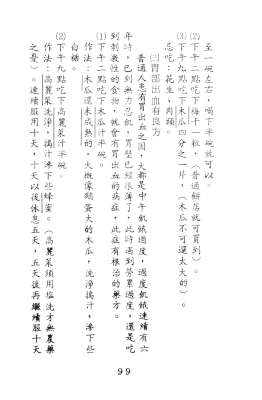 至一碗左右,喝下半碗就可以。
(2)下午二點吃下梅十一粒,(普通餅店就可買到)。
(3)下午九點吃下木瓜四分之一片,(木瓜不可選太大的)。
忌吃:花生、肉類。
㈢胃部出血有良方
普通人患有胃出血之因,大都是中午飢餓過度,過度飢餓連續有六
年時,已到無力忍飢,胃壁已經很薄了,此時遇到勞累過度,還是吃
到刺激性的食物,就會有胃出血的病症,此症有根治的藥方。
(1)下午二點吃下木瓜汁半碗。
作法:木瓜還未成熟的,大概像鵝蛋大的木瓜,洗淨搗汁,滲下些
白糖。
(2)下午九點吃下高麗菜汁半碗。
作法:高麗菜洗淨,搗汁滲下些蜂蜜。(高麗菜須用塩洗才無農藥
之憂)。連續服用十天,十天以後休息五天,五天後再繼續服十天
99